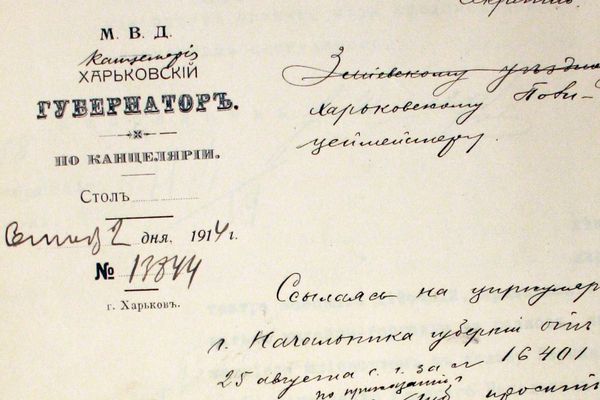 Секретно.
М. В. Д.
Канцелярія
ХАРЬКОВСКІЙ
ГУБЕРНАТОРЪ.
ПО КАНЦЕЛЯРІИ.
Столъ
2 дня, 1914 г.
№ 13844
г. Харьковъ.
Зміевскому уѣздно
Харьковскому Поли-
цеймейстеру
Ссылаясь на циркуляр
г. Начальника губерніи отъ
25 августа с. г. за № 16401
по приказанію